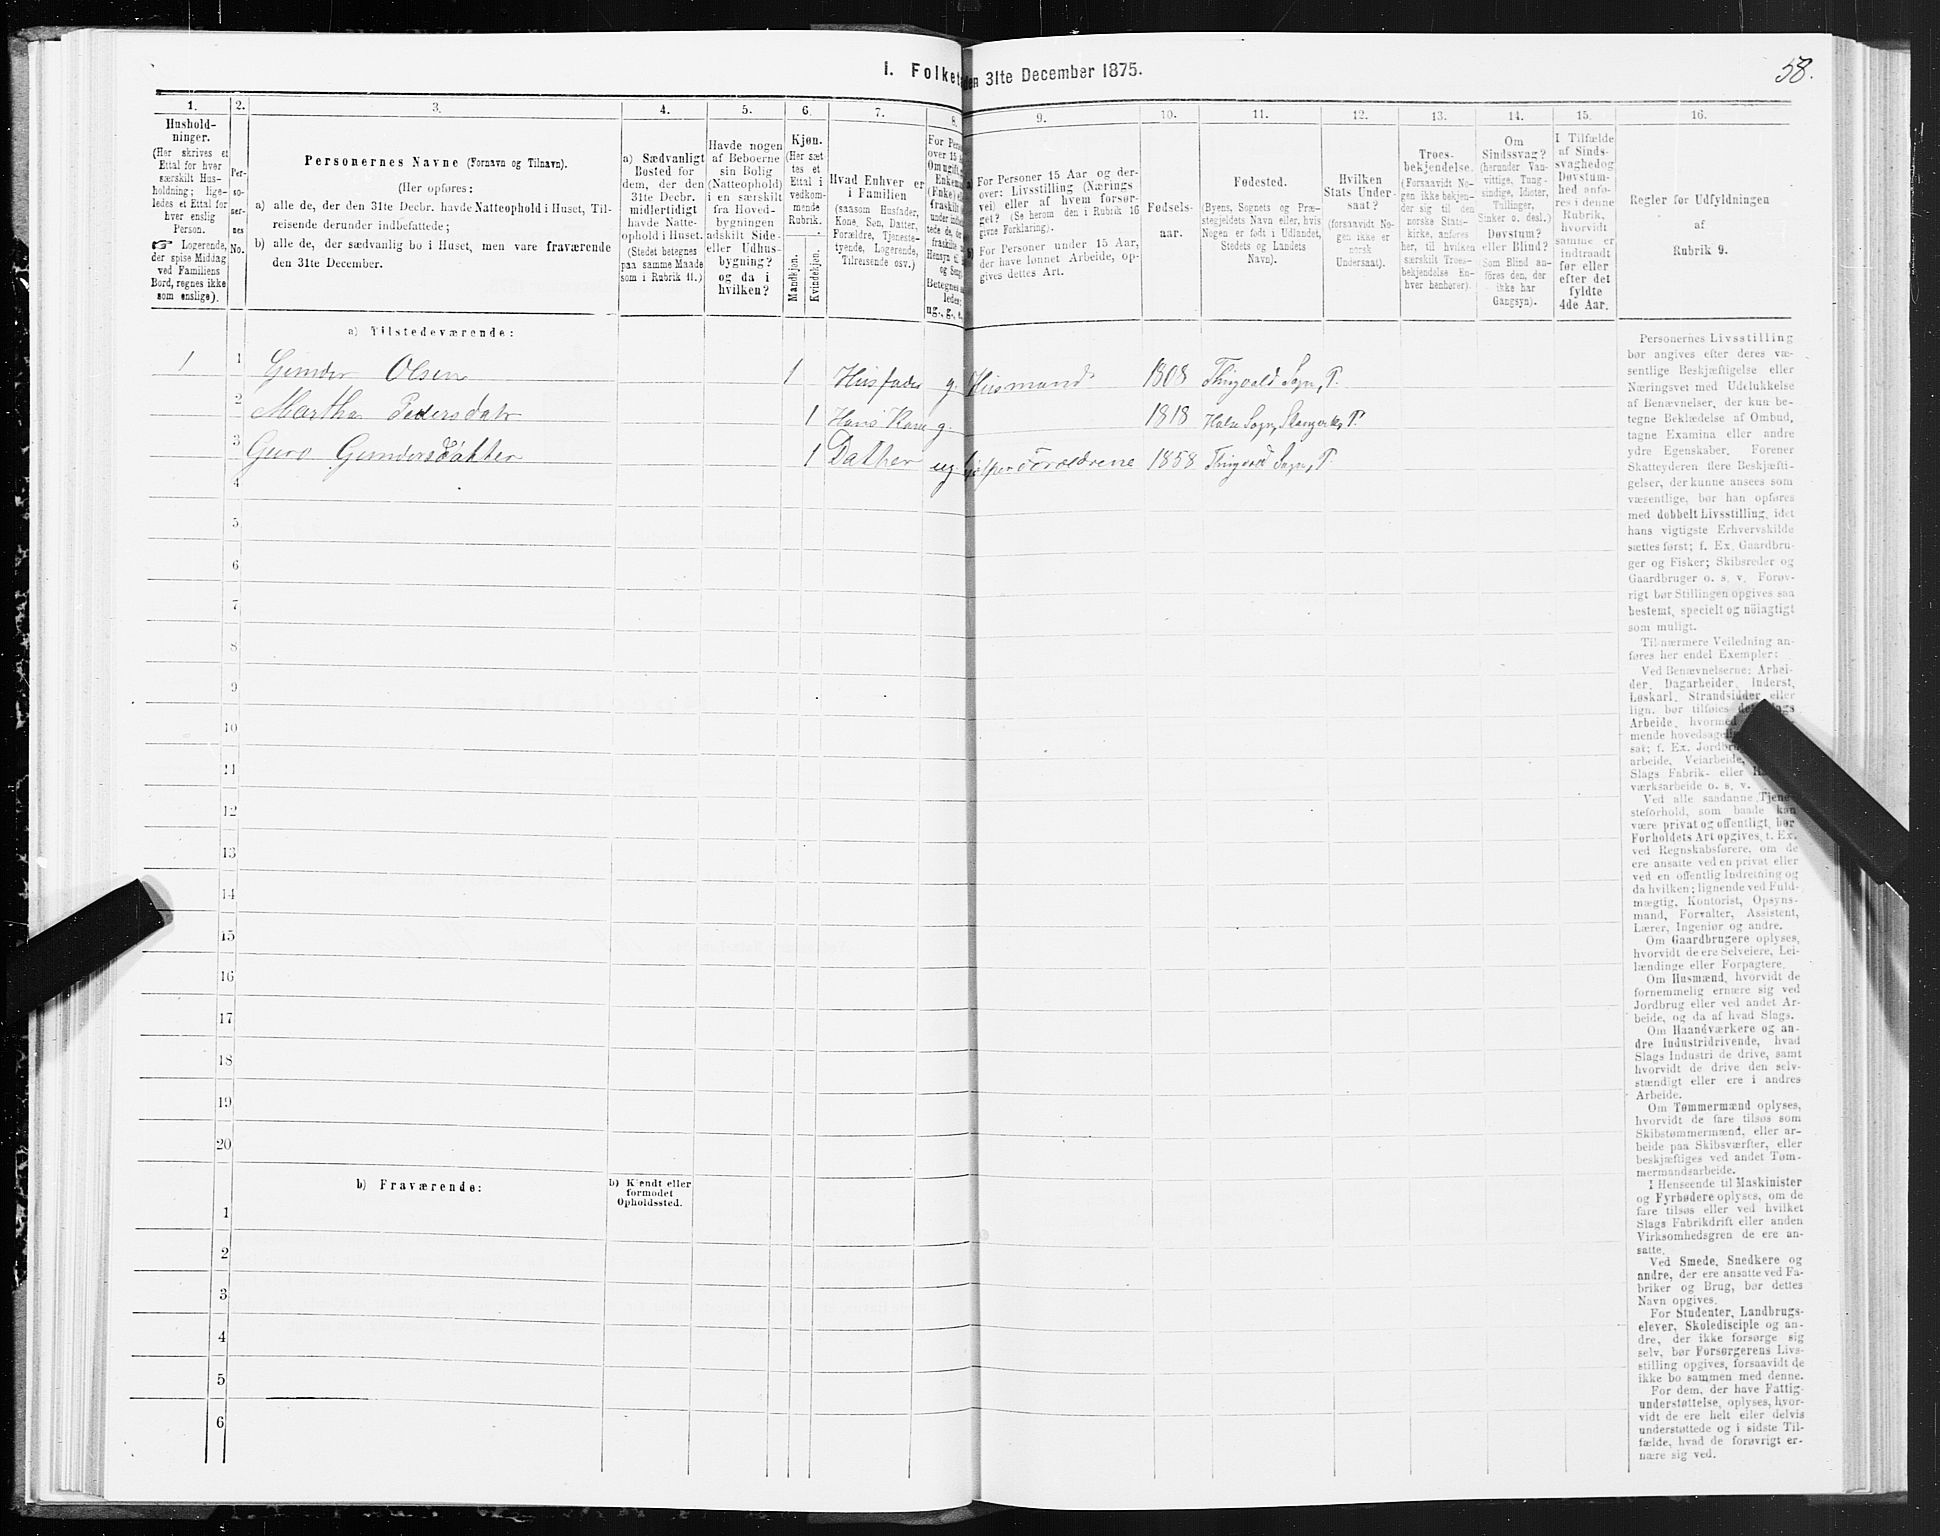 58.
I. Folket
den 31te December 1875.
1. 2. 3. 4. 5. 6. 7. 8. 9. 10. 11. 12. 13. 14. 15. 16.
Hushold-
ninger.
(Her skrives et
Ettal for hver
særskilt Hus-
holdning; lige-
ledes et Ettal for
hver enslig
Person.
☞ Logerende,
der spise Middag
ved Familiens
Bord, regnes ikke
som enslige).
Per-
so-
ner-
nes
No.
Personernes Navne (Fornavn og Tilnavn).
(Her opføres:
a) alle de, der den 31te Decbr. havde Natteophold i Huset, Til-
reisende derunder indbefattede;
b) alle de, der sædvanlig bo i Huset, men vare fraværende
den 31te December.
a) Sædvanligt
Bosted for
dem, der den
31te Decbr.
midlertidigt
havde Natte-
ophold i Huset.
(Stedet betegnes
paa samme Maade
som i Rubrik 11.)
Havde nogen
af Beboerne
sin Bolig
(Natteophold)
i en særskilt
fra Hoved-
bygningen
adskilt Side-
eller Udhus-
bygning?
og da i
hvilken?
Kjøn.
(Her sæt-
tes et
Ettal i
vedkom-
mende
Rubrik.
Mandkjøn.
Kvindekjøn.
Hvad Enhver er
i Familien
(saasom Husfader,
Kone, Søn, Datter,
Forældre, Tjeneste-
tyende, Logerende,
Tilreisende osv.)
For Pers
over 15 A
Om ugift,
Enkema
(Enke) el
fraskilt
under ind
tede de, de
fraskilte
Hensyn til
og Seng
Betegnes s
ledes:
ug., g., e.
a) For Personer 15 Aar og der-
over: Livsstilling (Nærings
vei) eller af hvem forsør-
get? (Se herom den i Rubrik 16
givne Forklaring).
b) For Personer under 15 Aar,
der have lønnet Arbeide, op-
gives dettes Art.
Fødsels-
aar.
Fødested.
(Byens, Sognets og Præ-
stegjeldets Navn eller, hvis
Nogen er født i Udlandet,
Stedets og Landets
Navn).
Hvilken
Stats Under-
saat?
(forsaavidt No-
gen ikke er
norsk
Undersaat).
Troes-
bekjendelse.
(Forsaavidt No-
gen ikke bekjen-
der sig til den
norske Stats-
kirke, anføres
her, til hvilken
særskilt Troes-
bekjendelse En-
hver henhører).
Om
Sindssvag?
(herunder Van-
vittige, Tung-
sindige, Idioter,
Tullinger,
Sinker o. desl.)
Døvstum?
eller Blind?
Som Blind an-
føres den, der
ikke har
Gangsyn).
I Tilfælde
af Sinds-
svaghed og
Døvstum-
hed anfø-
res i denne
Rubrik,
hvorvidt
samme er
indtraadt
før eller
efter det
fyldte
4de Aar.
Regler for Udfyldningen
af
Rubrik 9.
a) Tilstedeværende:
1 1 Gunder Olsen 1 Husfader g. Husmand 1808 Thingvold Sogn, P.
2 Martha Pedersdatr 1 Hans Kone g. 1818 Halse Sogn, P.
3 Guro Gundersdatter 1 Dather ug. Forældrene 1858 Thingvold Sogn, P.
4
5
6
7
8
9
10
11
12
13
14
15
16
17
18
19
20
b) Fraværende:
b) Kjendt eller
formodet
Opholdssted.
1
2
3
4
5
6
Personernes Livsstilling
bør angives efter deres væ-
sentlige Beskjæftigelse eller
Næringsvei med Udelukkelse
af Benævnelser, der kun be-
tegne Beklædelse af Ombud,
tagne Examina eller andre
ydre Egenskaber. Forener
Skatteyderen flere Beskjæfti-
gelser, der kunne ansees som
væsentlige, bør han opføres
med dobbelt Livsstilling, idet
hans vigtigste Erhvervskilde
sættes først; f. Ex. Gaardbru-
ger og Fisker; Skibsreder og
Gaardbruger o. s. v. Forøv-
rigt bør Stillingen opgives saa
bestemt, specielt og nøiagtigt
som muligt.
Til nærmere Veiledning an-
føres her endel Exempler:
Ved Benævnelserne: Arbei-
der, Dagarbeider, Inderst,
Løskarl, Strandsidder eller
lign. bør tilføies det Slags
Arbeide, hvormed
mende hovedsagel
sat; f. Ex. Jordbr
arbeide, Veiarbeide,
Slags Fabrik- eller
værksarbeide o. s. v.
Ved alle saadanne Tjene-
steforhold, som baade kan
være privat og offentligt, bør
Forholdets Art opgives, t. Ex.
ved Regnskabsførere, om de
ere ansatte ved en privat eller
ved en offentlig Indretning og
da hvilken; lignende ved Fuld-
mægtig, Kontorist, Opsyns-
mand, Forvalter, Assistent,
Lærer, Ingeniør og andre.
Om Gaardbrugere oplyses,
hvorvidt de ere Selveiere, Lei-
lændinge eller Forpagtere.
Om Husmænd, hvorvidt de
fornemmelig ernære sig ved
Jordbrug eller ved andet Ar-
beide, og da af hvad Slags.
Om Haandværkere og an-
dre Industridrivende, hvad
Slags Industri de drive, samt
hvorvidt de drive den selv-
stændigt eller ere i andres
Arbeide.
Om Tømmermænd oplyses,
hvorvidt de fare tilsøs som
Skibstømmermænd, eller ar-
beide paa Skibsværfter, eller
beskjæftiges ved andet Tøm-
mermandsarbeide.
I Henseende til Maskinister
og Fyrbødere oplyses, om de
fare tilsøs eller ved hvilket
Slags Fabrikdrift eller anden
Virksomhedsgren de ere an-
satte.
Ved Smede, Snedkere og
andre, der ere ansatte ved Fa-
briker og Brug, bør dettes
Navn opgives.
For Studenter, Landbrugs-
elever, Skoledisciple og an-
dre, der ikke forsørge sig
selv, bør Forsørgerens Livs-
stilling opgives, forsaavidt de
ikke bo sammen med denne.
For dem, der have Fattig-
understøttelse, oplyses, hvor-
vidt de ere helt eller delvis
understøttede og i sidste Til-
fælde, hvad de forøvrigt er-
nære sig ved.